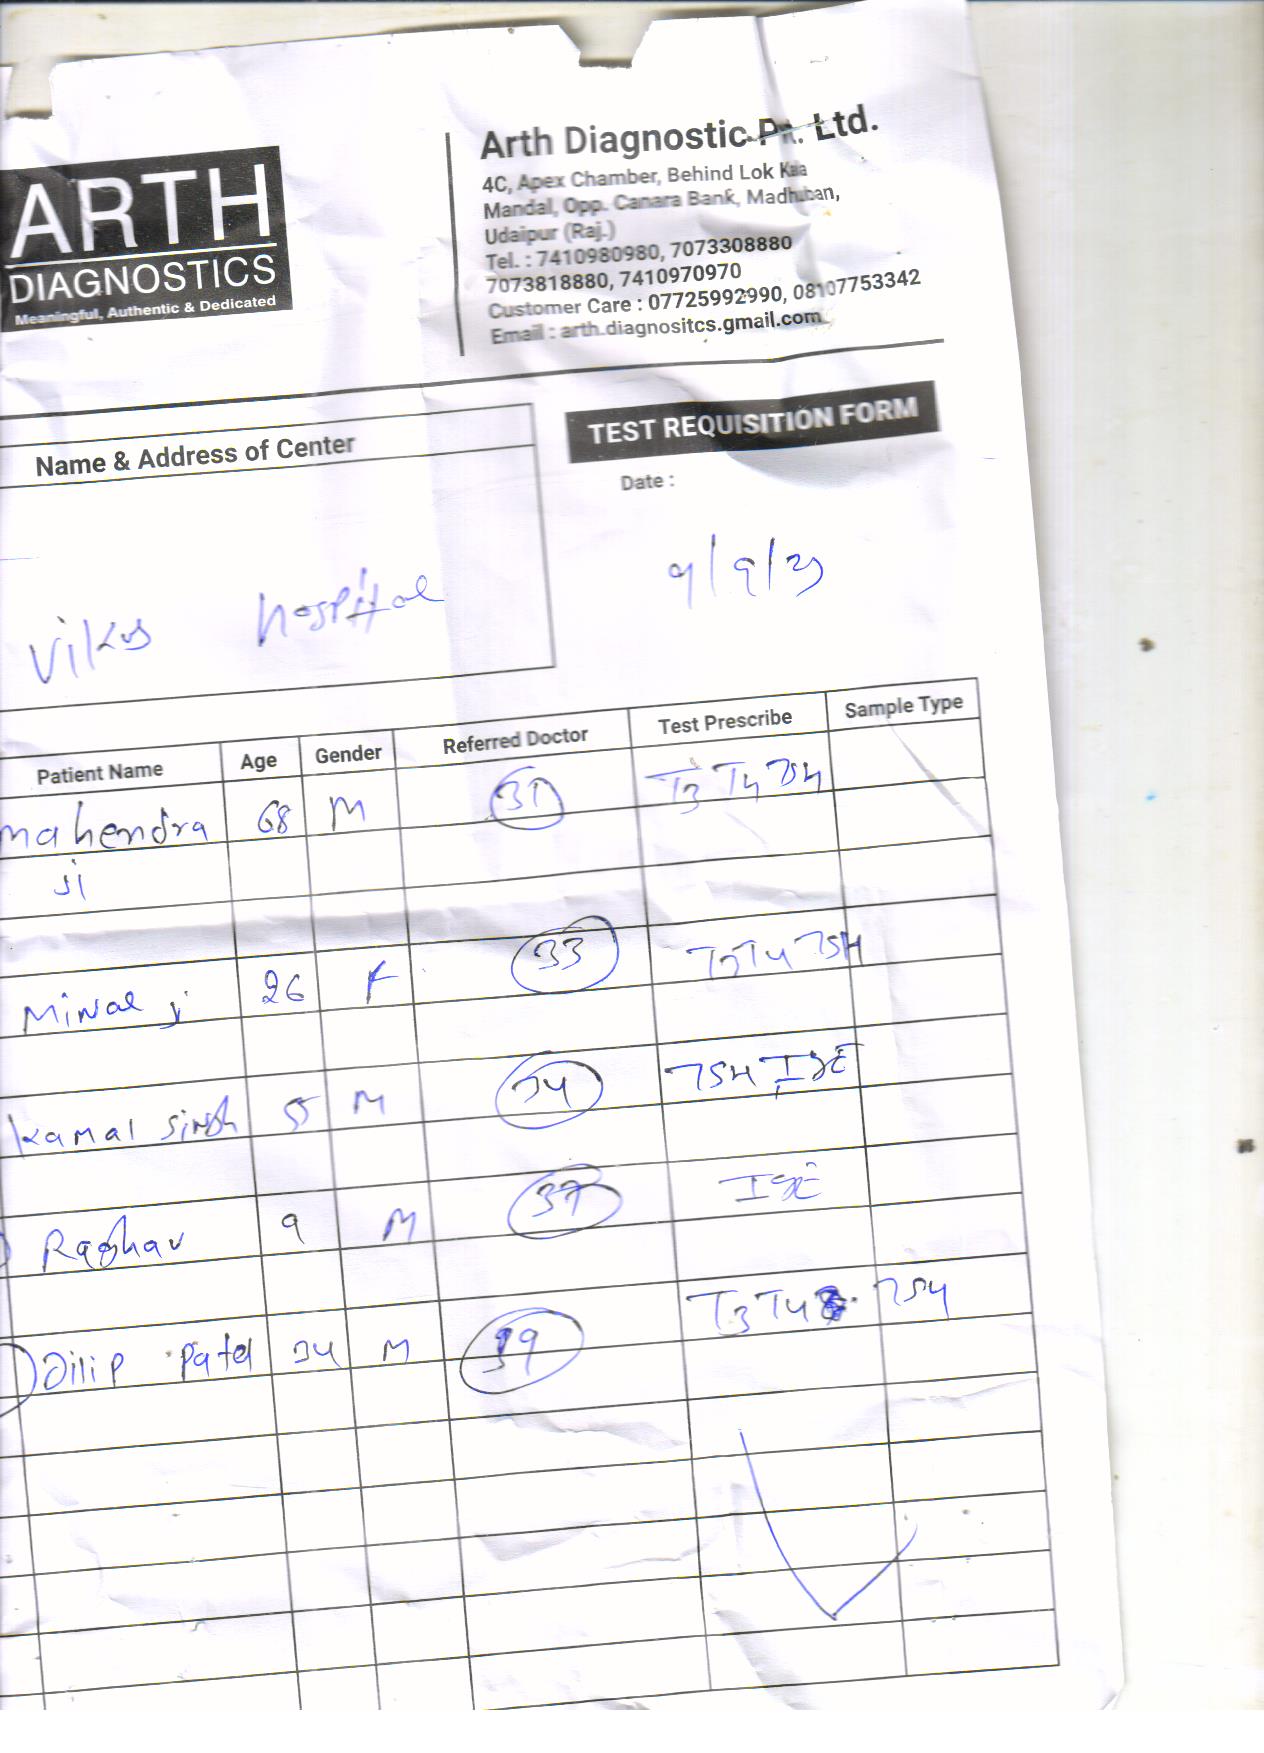 ARTH
DIAGNOSTICS
Meaningful, Authentic & Dedicated
Arth Diagnostic Pvt. Ltd.
4C, Apex Chamber, Behind Lok Kala
Mandal, Opp. Canara Bank, Madhuban,
Udaipur (Raj.)
Tel. : 7410980980, 7073308880
7073818880, 7410970970
Customer Care : 07725992990, 08107753342
Email : arth.diagnositcs.gmail.com
Name & Address of Center
TEST REQUISITION FORM
Date :
9/9/23
Vikas hospital
Patient Name Age Gender Referred Doctor Test Prescribe Sample Type
mahendra 68 M 31 T3 T4 TSH
ji
Minal ji 26 F 33 T3 T4 TSH
Kamal Singh 55 M 34 TSH IgE
Raghav 9 M 37 IgE
Dilip Patel 34 M 39 T3 T4 TSH